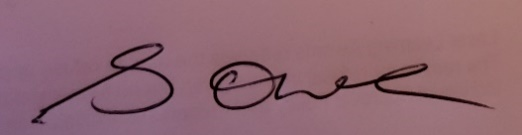 S Owen